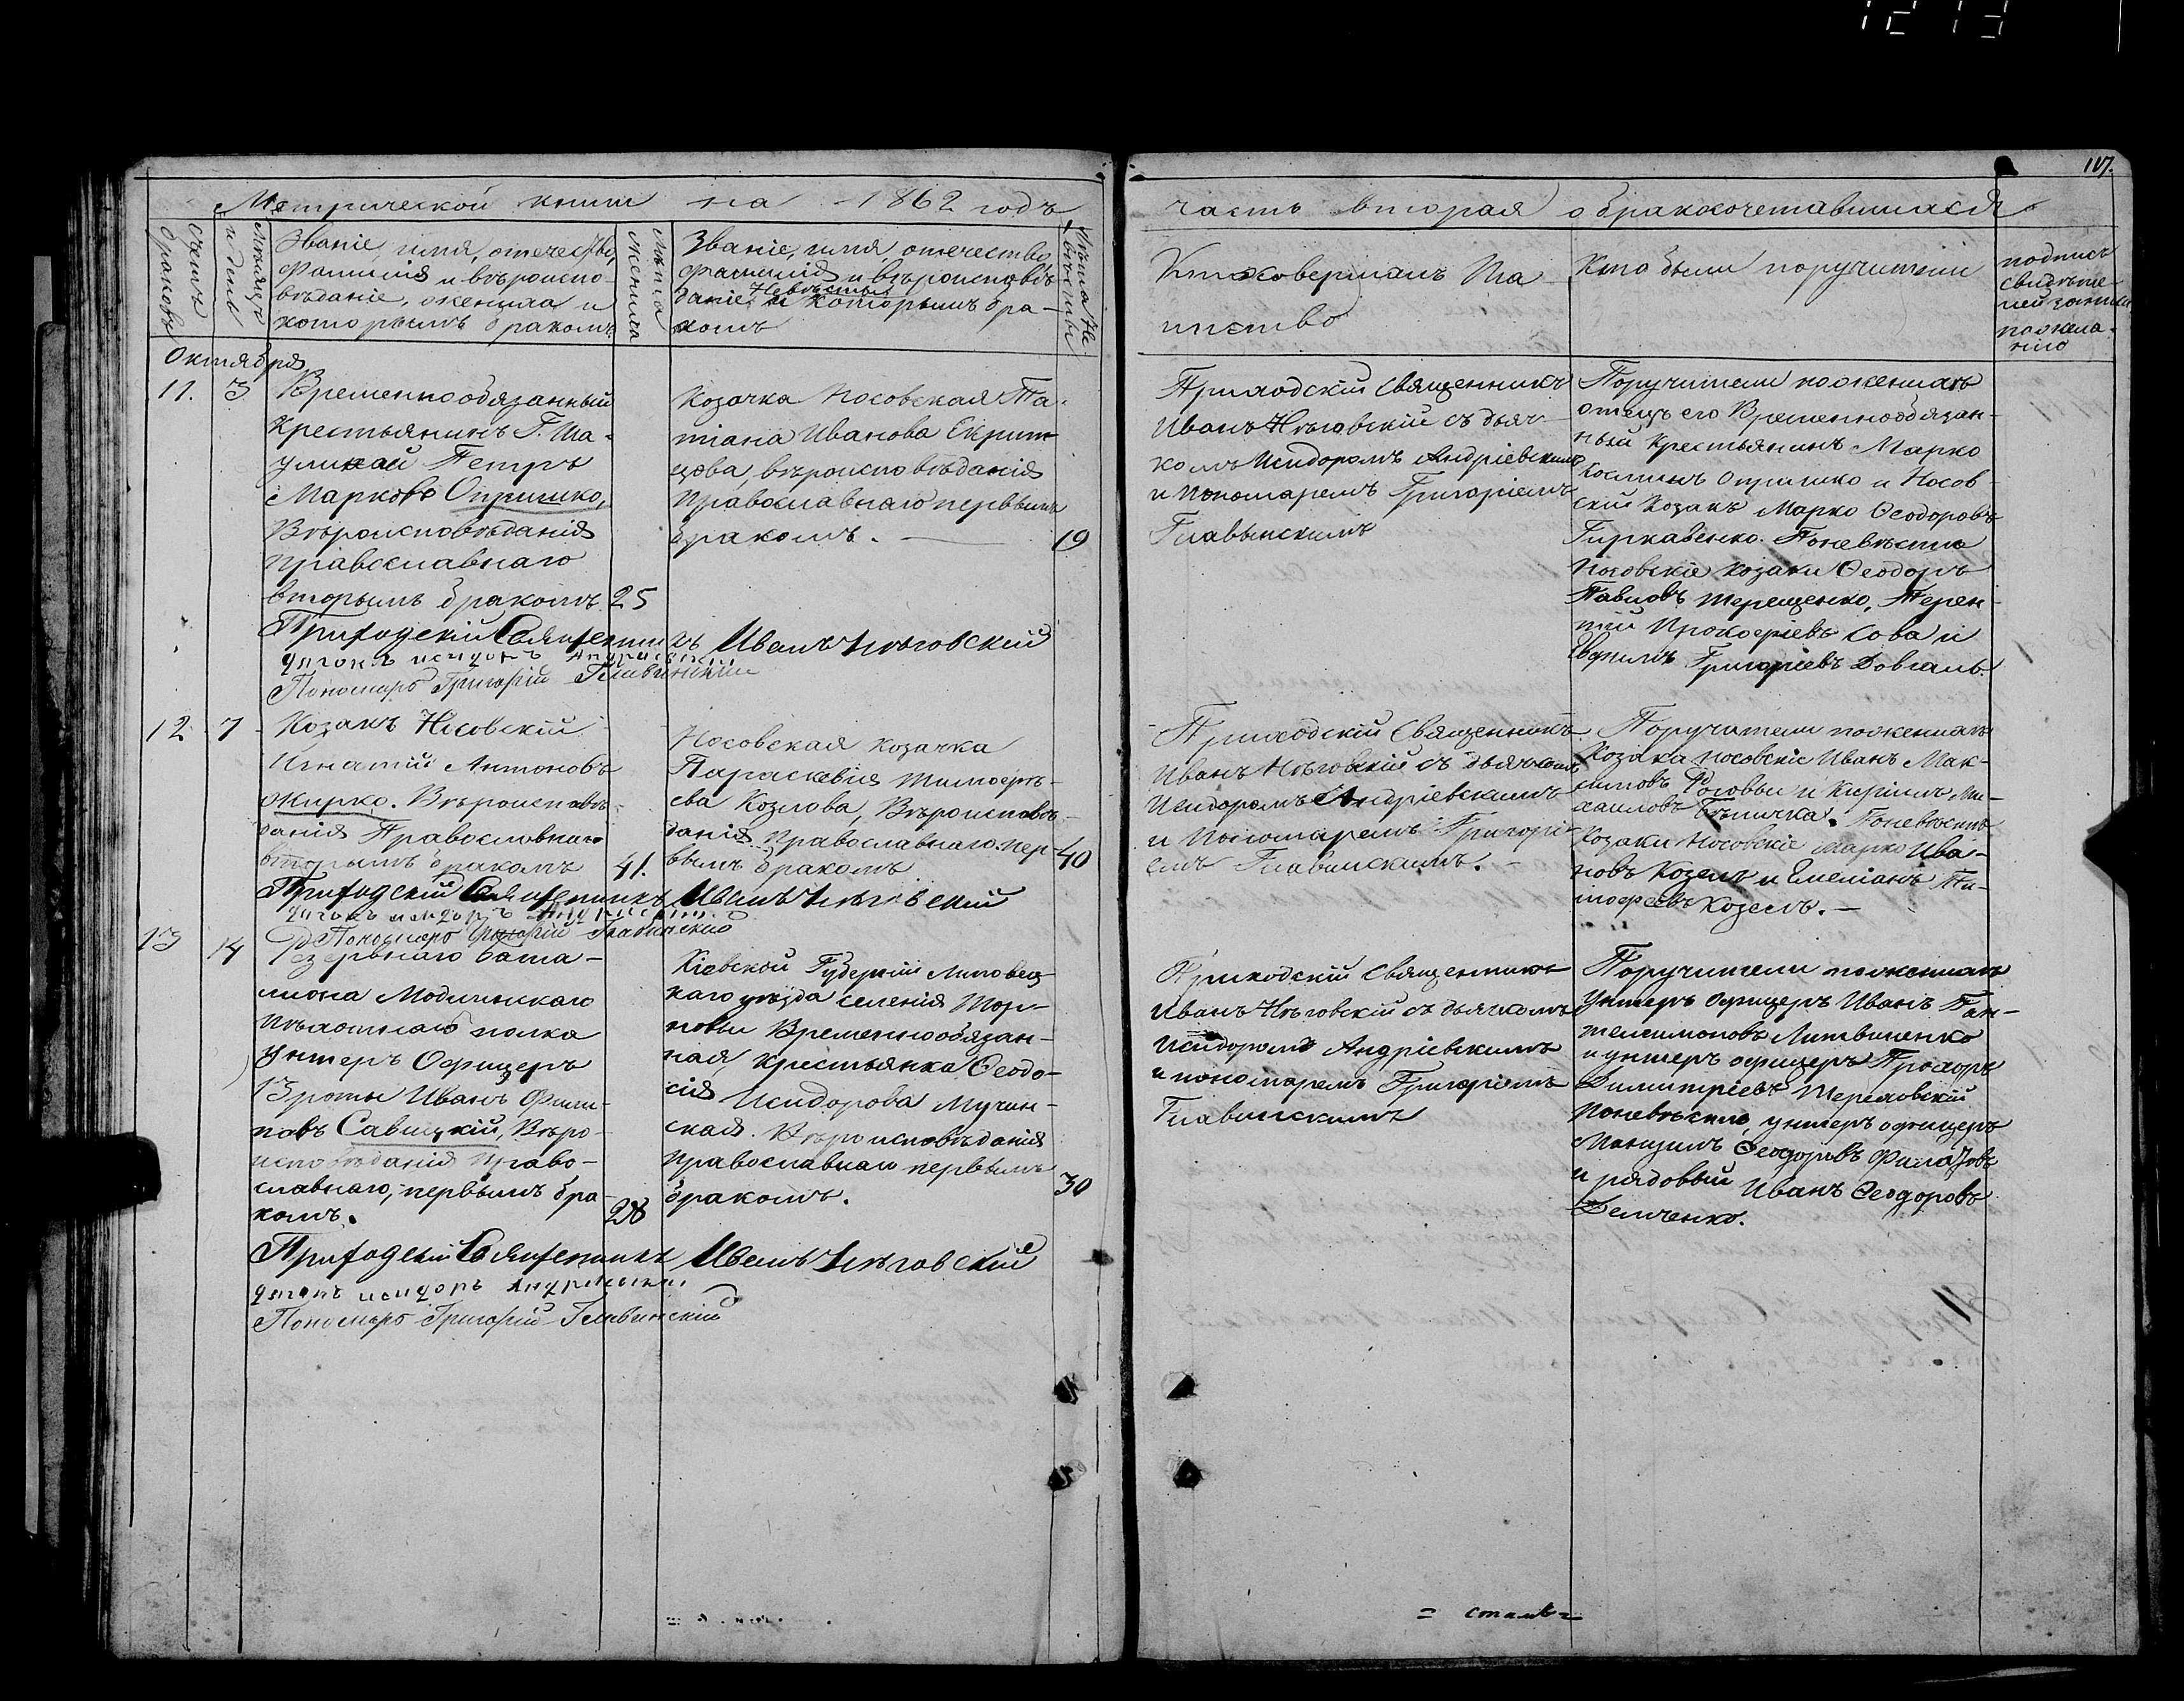 1213
107.
Метрической книги на 1862 годъ
часть вторая о бракосочетавшихся
Счетъ браковъ
Мѣсяцъ и день
Званіе, имя, отечество,
фамилія и вѣроиспо-
вѣданіе, жениха и
которымъ бракомъ
Лѣта жениха
Званіе, имя, отечество
фамилія и вѣроисповѣ
даніе невѣсты и которымъ бра-
комъ
Лѣта Невѣсты
Кто совершалъ Та
инство
Кто были поручители
подпись
свидѣте
лей записи
по жела-
нію
Октября
11. 3
Временнообязанный
Крестьянинъ Г. Ша-
Петръ
Марковъ Опришко,
Вѣроисповѣданія
Православнаго
вторымъ бракомъ. 25
Козачка Носовская Та-
тіана Иванова
вѣроисповѣданія
Православнаго первымъ
бракомъ. — 19
Приходскій Священникъ
Иванъ Нѣговскій съ дьяч-
комъ Исидоромъ Андріевскимъ
и Пономаремъ Григоріемъ
Главынскимъ
Поручители по женихѣ
отецъ его Временнообязан-
ный Крестьянинъ Марко
Косминъ Опришко и Носов-
скій Козакъ Марко Ѳеодоровъ
Гиркавенко. По невѣстѣ
Носовскіе Козаки Ѳеодоръ
Павловъ Терещенко, Терен-
тій Прокофіевъ Сова и
Григоріевъ Довгаль.
Приходскій Священникъ Иванъ Нѣговскій
дячокъ исидоръ Андріевскій
Пономарь Григорій Главинскій
12 7
Козакъ Носовскій
Игнатій Антоновъ
Жирко. Вѣроисповѣ-
данія Православнаго
вторымъ бракомъ 41.
Носовская козачка
Параскевія Тимофѣ-
ева Козлова, Вѣроисповѣ-
данія Православнаго. пер-
вымъ бракомъ 40
Приходскій Священникъ
Иванъ Нѣговскій съ дьячкомъ
Исидоромъ Андріевскимъ
и Пономаремъ Григорі-
емъ Главинскимъ. -
Поручители по женихѣ
Козаки Носовскіе Иванъ Мак-
симовъ и Кирилъ Ми-
хаиловъ По невѣстѣ
Козаки Носовскіе Марко Ива-
новъ Козелъ и Емеліанъ Ти-
мофеевъ Козелъ. —
Приходскій Священникъ Иванъ Нѣговскій
дячокъ исидоръ Андріевскій
Пономарь Григорій Главинскій
13 14
Резервнаго бата-
ліона Модлинскаго
Пѣхотнаго полка
Унтеръ Офицеръ
роты Иванъ Фили-
повъ Савицкій, Вѣро-
исповѣданія Право-
славнаго, первымъ бра-
комъ. 28
Кіевской Губерніи Липовец-
каго уѣзда селенія
Временнообязан-
ная, крестьянка Ѳеодо-
сія Исидорова Мучин-
ская. Вѣроисповѣданія
Православнаго первымъ
бракомъ. 30
Приходскій Священникъ
Иванъ Нѣговскій съ дьячкомъ
Исидоромъ Андріевскимъ
и пономаремъ Григоріемъ
Главинскимъ
Поручители по женихѣ
Унтеръ Офицеръ Иванъ Пан-
телеимоновъ Литвиненко
и унтеръ офицеръ Прохоръ
Димитріевъ
По невѣстѣ, унтеръ офицеръ
Ѳеодоровъ Филатовъ
и рядовый Иванъ Ѳеодоровъ
Демченко.
Приходскій Священникъ Иванъ Нѣговскій
дячокъ исидоръ Андріевскій
Пономарь Григорій Главинскій